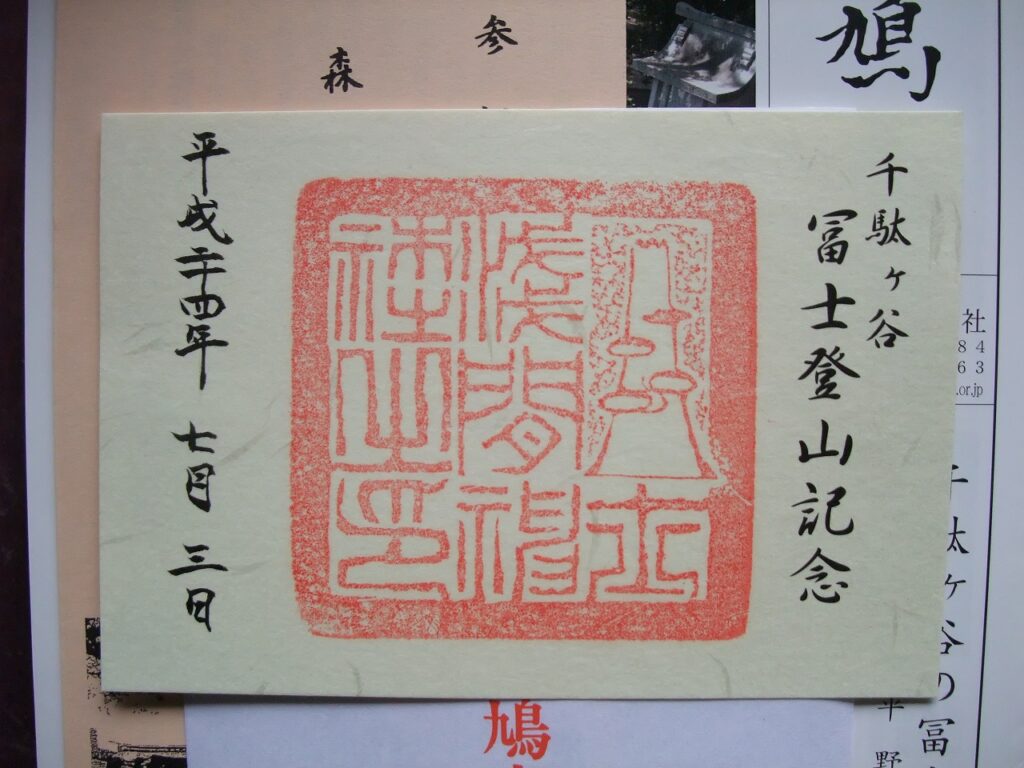 鳩
社
84
63
.or.jp
駄ヶ谷の冨
野
参
森
千駄ヶ谷
冨士登山記念
士
淺間神
社之印
平成二十四年 七月 三日
鳩